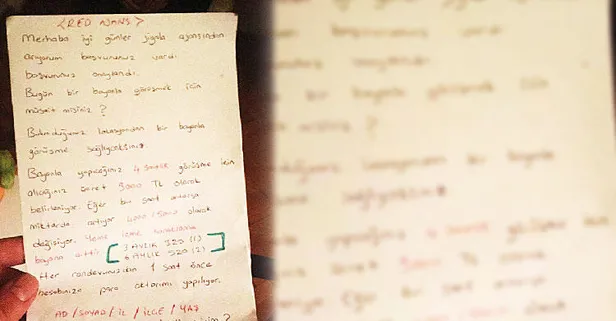 <RED AJANS>
Merhaba iyi günler jigolo ajansından
arıyorum başvurunuz vardı
başvurunuz onaylandı.
Bugün bir bayanla görüşmek için
müsait misiniz ?
Bulunduğunuz lokasyondan bir bayanla
görüşme sağlıyacaksınız
Bayanla yapacağınız 4 saatlik görüşme için
alacağınız ücret TL olarak
belirleniyor. Eğer bu saat artarsa
miktarda artıyor olarak
değişiyor. Yeme içme
bayana aittir
3 AYLIK 320 (1)
6 AYLIK 520 (2)
Her randevunuzdan 1 saat önce
hesabınıza para aktarımı yapılıyor.
AD / SOYAD / İL / İLÇE / YAŞ